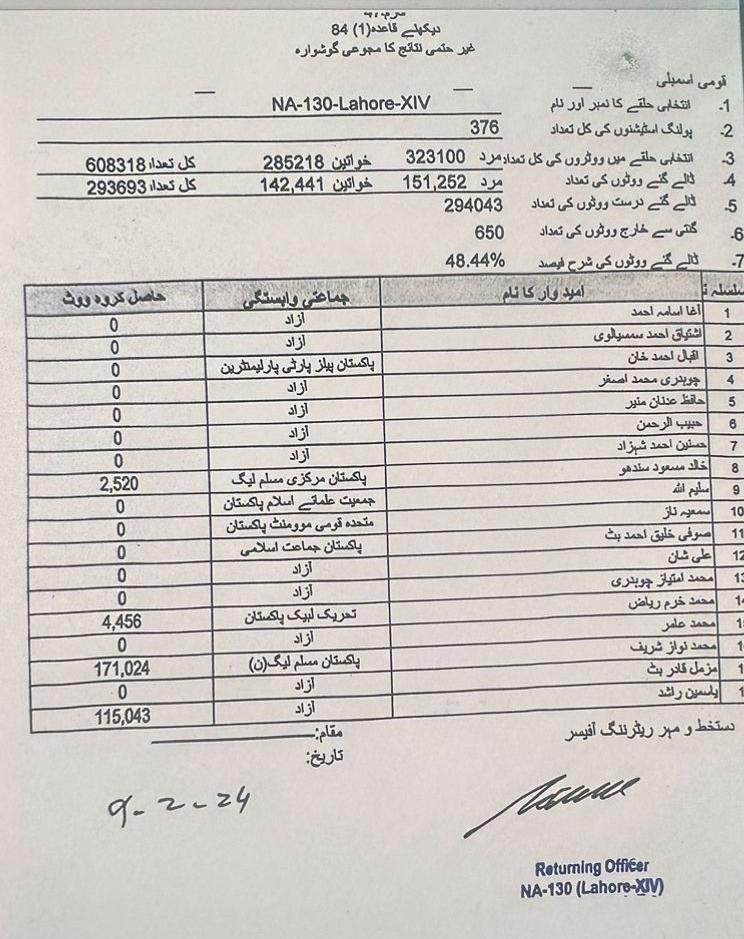 دیکھئے قاعدہ(1) 84
غیر حتمی نتائج کا مجموعی گوشوارہ
قومی اسمبلی
1- انتخابی حلقے کا نمبر اور نام NA-130-Lahore-XIV
2- پولنگ اسٹیشنوں کی کل تعداد 376
3- انتخابی حلقے میں ووٹروں کی کل تعداد مرد 323100 خواتین 285218 کل تعداد 608318
4- ڈالے گئے ووٹوں کی تعداد مرد 151,252 خواتین 142,441 کل تعداد 293693
5- ڈالے گئے درست ووٹوں کی تعداد 294043
6- گنتی سے خارج ووٹوں کی تعداد 650
7- ڈالے گئے ووٹوں کی شرح فیصد 48.44%
سلسلہ امیدوار کا نام جماعتی وابستگی حاصل کردہ ووٹ
1 آغا اسامہ احمد آزاد 0
2 اشتیاق احمد سمسیالوی آزاد 0
3 اقبال احمد خان پاکستان پیپلز پارٹی پارلیمنٹرین 0
4 چوہدری محمد اصغر آزاد 0
5 حافظ عدنان منیر آزاد 0
6 حبیب الرحمن آزاد 0
7 حسنین احمد شہزاد آزاد 0
8 خالد مسعود سندھو پاکستان مرکزی مسلم لیگ 2,520
9 سلیم اللہ جمعیت علمائے اسلام پاکستان 0
10 سمعیہ ناز متحدہ قومی موومنٹ پاکستان 0
11 صوفی خلیق احمد بٹ پاکستان جماعت اسلامی 0
12 علی شان آزاد 0
13 محمد امتیاز چوہدری آزاد 0
1 محمد خرم ریاض تحریک لبیک پاکستان 4,456
1 محمد عامر آزاد 0
1 محمد نواز شریف پاکستان مسلم لیگ(ن) 171,024
1 مزمل قادر بٹ آزاد 0
1 یاسمین راشد آزاد 115,043
دستخط و مہر ریٹرننگ آفیسر
مقام:
تاریخ:
9-2-24
Returning Officer
NA-130 (Lahore-XIV)